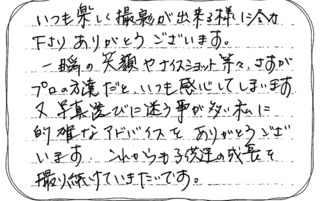 いつも楽しく撮影が出来る様に協力
下さりありがとうございます。
一瞬の笑顔やナイスショット等々、さすが
プロの方達だと、いつも感心してしまいます
又、写真選びに迷う事が多い私に
的確なアドバイスを ありがとうござ
います。これからも子供達の成長を
撮り続けていきたいです。